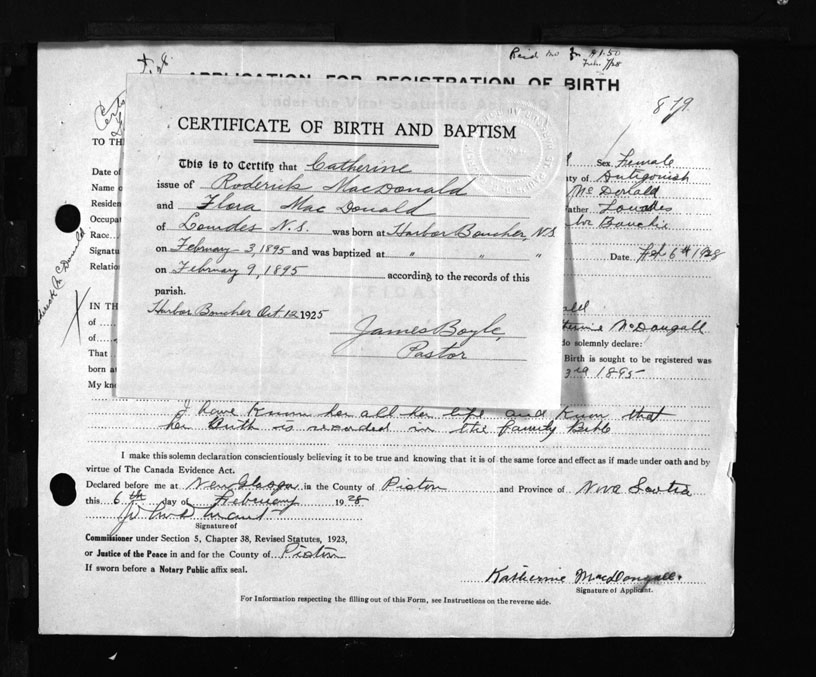 Paid
$1.50
APPLICATION FOR REGISTRATION OF BIRTH
879
CERTIFICATE OF BIRTH AND BAPTISM
This is to Certify that Catherine
issue of Roderick MacDonald
and Flora Mac Donald
of Lourdes N.S. was born at Harbor Boucher, N.S
on February 3, 1895 and was baptized at " " "
on February 9, 1895 according to the records of this
parish.
Harbor Boucher Oct 12 1925
James Boyle,
Pastor
TO TH
Date of
Name o
Residen
Occupat
Race
Signatu
Relatio
Sex Female
ty of Antigonish
McDonald
Father Lourdes
Date Feb 6th 1928
IN TH
of
of
That
born a
My kno
ald
therine McDougall
do solemnly declare:
Birth is sought to be registered was
3rd 1895
I have known her all her life and know that
her birth is recorded in the family Bible
I make this solemn declaration conscientiously believing it to be true and knowing that it is of the same force and effect as if made under oath and by
virtue of The Canada Evidence Act.
Declared before me at New Glasgow in the County of Pictou and Province of Nova Scotia
this 6th day of February 1928
Signature of
Commissioner under Section 5, Chapter 38, Revised Statutes, 1923,
or Justice of the Peace in and for the County of Pictou
If sworn before a Notary Public affix seal.
Katherine MacDougall.
Signature of Applicant.
For Information respecting the filling out of this Form, see Instructions on the reverse side.